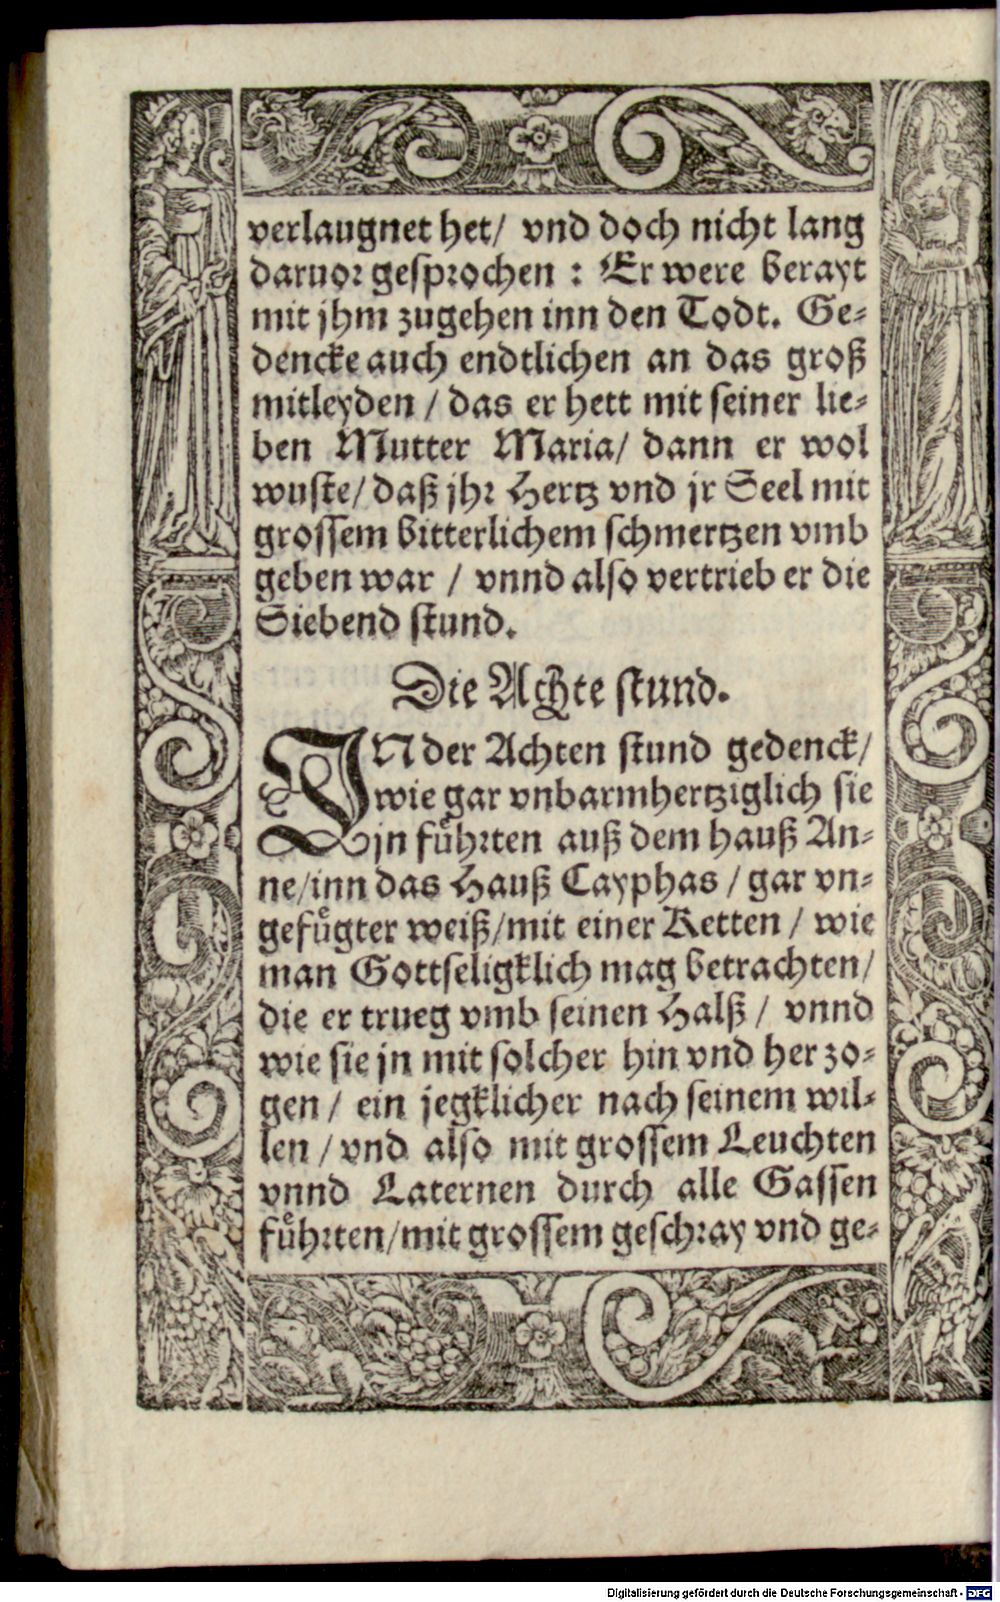 verlaugnet het/ vnd doch nicht lang
daruor gesprochen : Er were berayt
mit jhm zugehen inn den Todt. Ge-
dencke auch endtlichen an das groß
mitleyden / das er hett mit seiner lie-
ben Mutter Maria/ dann er wol
wuste/ daß jhr Hertz vnd jr Seel mit
grossem bitterlichem schmertzen vmb
geben war / vnnd also vertrieb er die
Siebend stund.
Die Achte stund.
IN der Achten stund gedenck/
wie gar vnbarmhertziglich sie
jn fuͤhrten auß dem hauß An-
ne/inn das Hauß Cayphas / gar vn-
gefuͤgter weiß/mit einer Ketten / wie
man Gottseligklich mag betrachten/
die er trueg vmb seinen Halß / vnnd
wie sie jn mit solcher hin vnd her zo-
gen / ein jegklicher nach seinem wil-
len / vnd also mit grossem Leuchten
vnnd Laternen durch alle Gassen
fuͤhrten/mit grossem geschray vnd ge-
Digitalisierung gefördert durch die Deutsche Forschungsgemeinschaft - DFG